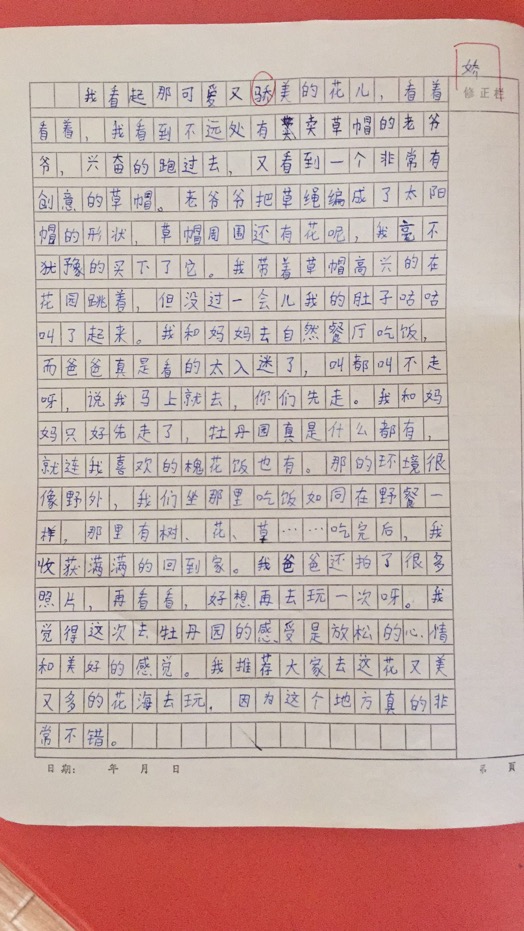 娇
修正栏
我看起那可爱又骄美的花儿，看着
看着，我看到不远处有卖草帽的老爷
爷，兴奋的跑过去，又看到一个非常有
创意的草帽。老爷爷把草绳编成了太阳
帽的形状，草帽周围还有花呢，我毫不
犹豫的买下了它。我带着草帽高兴的在
花园跳着，但没过一会儿我的肚子咕咕
叫了起来。我和妈妈去自然餐厅吃饭，
而爸爸真是看的太入迷了，叫都叫不走
呀，说我马上就去，你们先走。我和妈
妈只好先走了，牡丹园真是什么都有，
就连我喜欢的槐花饭也有。那的环境很
像野外，我们坐那里吃饭如同在野餐一
样，那里有树、花、草……吃完后，我
收获满满的回到家。我爸爸还拍了很多
照片，再看看，好想再去玩一次呀。我
觉得这次去牡丹园的感受是放松的心情
和美好的感觉。我推荐大家去这花又美
又多的花海去玩，因为这个地方真的非
常不错。
日期： 年 月 日 第 頁